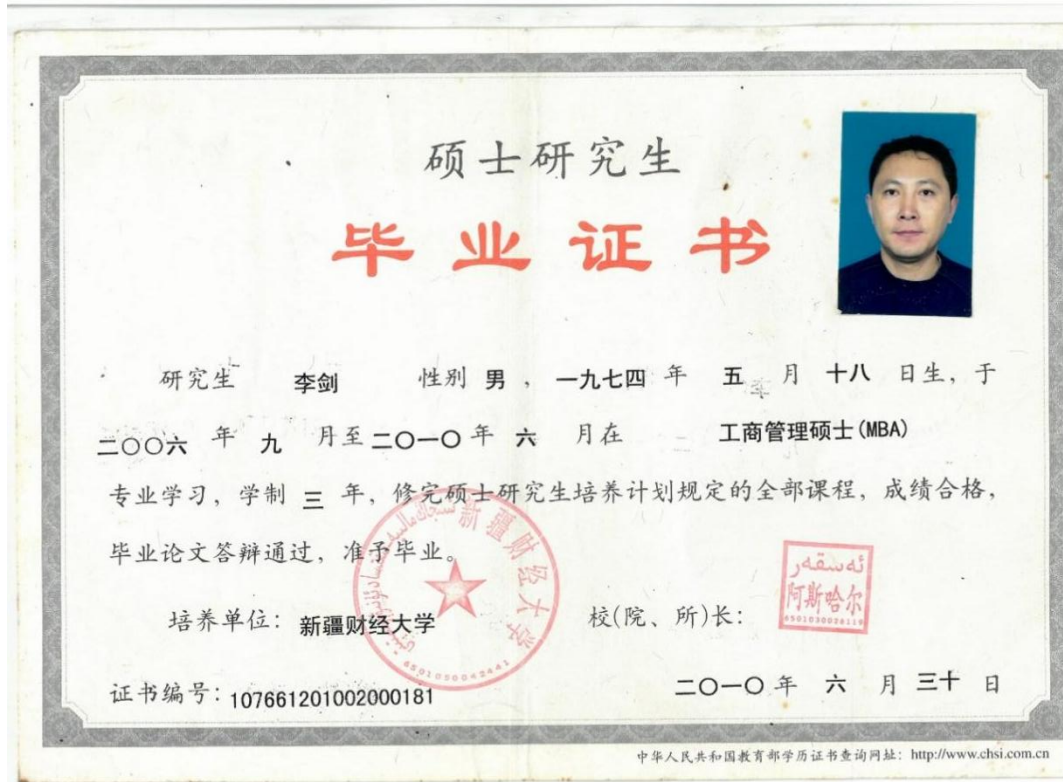 硕士研究生
毕业证书
研究生 李剑 性别 男 ， 一九七四 年 五 月 十八 日生，于
二〇〇六 年 九 月至 二〇一〇 年 六 月在 工商管理硕士(MBA)
专业学习，学制 三 年，修完硕士研究生培养计划规定的全部课程，成绩合格，
毕业论文答辩通过，准予毕业。
新疆财经大学
6501030042441
ئەسقەر
阿斯哈尔
培养单位：新疆财经大学 校(院、所)长：
证书编号：107661201002000181 二〇一〇 年 六 月 三十 日
中华人民共和国教育部学历证书查询网址：http://www.chsi.com.cn